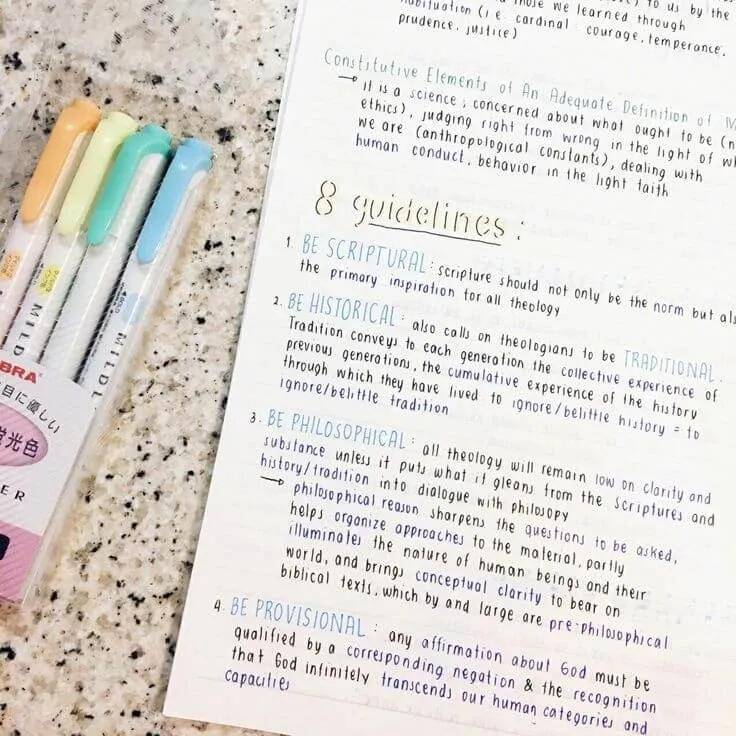 to us by the
those we learned through
habituation (i.e. cardinal : courage, temperance,
prudence, justice)
Constitutive Elements of An Adequate Definition of
→ it is a science ; concerned about what ought to be
ethics), judging right from wrong in the light of
we are (anthropological constants), dealing with
human conduct, behavior in the light faith
8 guidelines :
1. BE SCRIPTURAL : scripture should not only be the norm but
the primary inspiration for all theology
2. BE HISTORICAL : also calls on theologians to be TRADITIONAL.
Tradition conveys to each generation the collective experience of
previous generations, the cumulative experience of the history
through which they have lived to ignore/belittle history = to
ignore/belittle tradition
3. BE PHILOSOPHICAL : all theology will remain low on clarity and
substance unless it puts what it gleans from the Scriptures and
history/tradition into dialogue with philosopy
→ philosophical reason sharpens the questions to be asked,
helps organize approaches to the material, partly
illuminates the nature of human beings and their
world, and brings conceptual clarity to bear on
biblical texts, which by and large are pre-philosophical
4. BE PROVISIONAL : any affirmation about God must be
qualified by a corresponding negation & the recognition
that God infinitely transcends our human categories and
capacities
MILD
MILDL
BRA
目に優しい
光色
ER